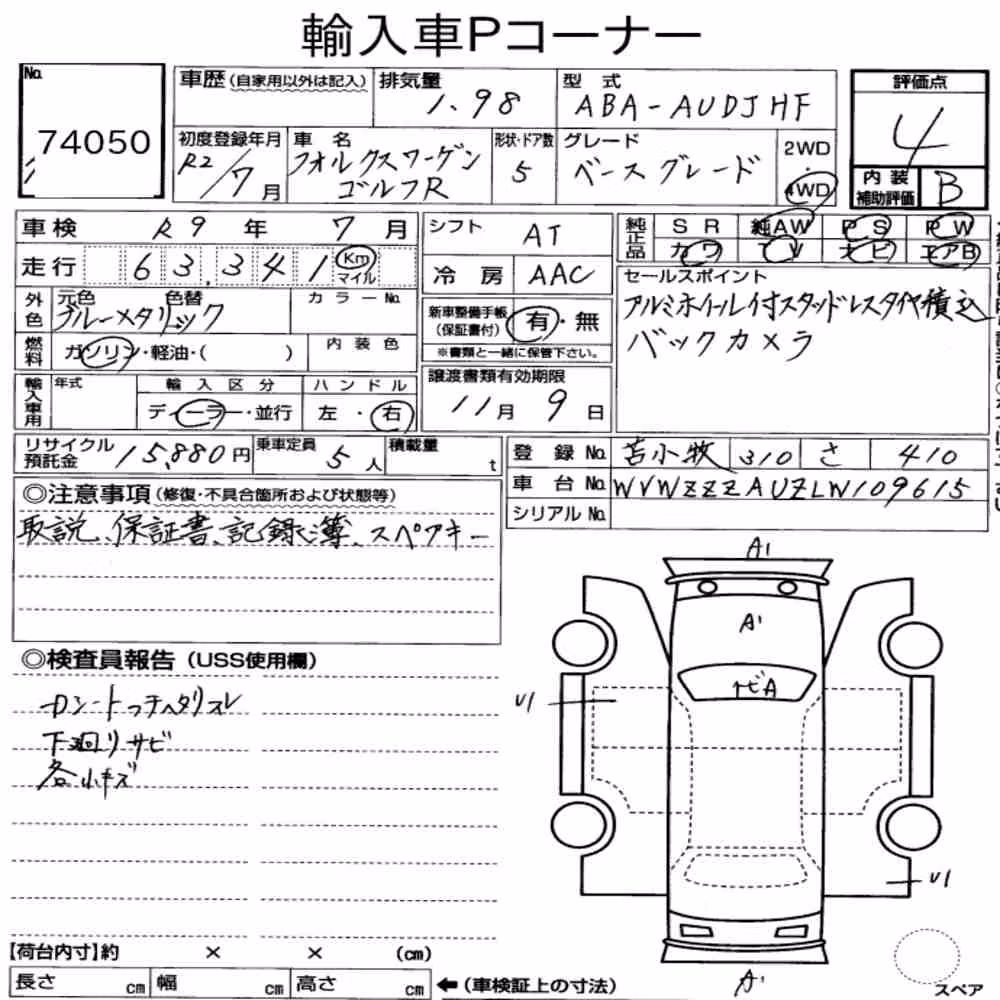 輸入車Pコーナー
No.
74050
車歴(自家用以外は記入)
排気量
1.98
型式
ABA-AUDJHF
評価点
4
初度登録年月
R2/7月
車名
フォルクスワーゲン
ゴルフR
形状・ドア数
5
グレード
ベースグレード
2WD
・
4WD
内装
補助評価
B
車検
R9年7月
シフト
AT
純正品
SR
純AW
PS
PW
カワ
TV
ナビ
エアB
走行
63,341
Km
マイル
冷房
AAC
セールスポイント
アルミホイール付スタッドレスタイヤ積込
バックカメラ
外色
元色
色替
ブルーメタリック
カラーNo.
新車整備手帳
(保証書付)
有・無
※書類と一緒に保管下さい。
燃料
ガソリン・軽油・( )
内装色
輸入車用
年式
輸入区分
ディーラー・並行
ハンドル
左・右
譲渡書類有効期限
11月9日
リサイクル
預託金
15,880円
乗車定員
5人
積載量
t
登録No.
苫小牧
310
さ
410
車台No.
WVWZZZAUZLW109615
シリアルNo.
◎注意事項(修復・不具合箇所および状態等)
取説、保証書、記録簿、スペアキー
◎検査員報告(USS使用欄)
下廻りサビ
各小キズ
A1
A1
トビA
U1
U1
A1
【荷台内寸】約 × × (cm)
長さ cm
幅 cm
高さ cm
←(車検証上の寸法)
スペア